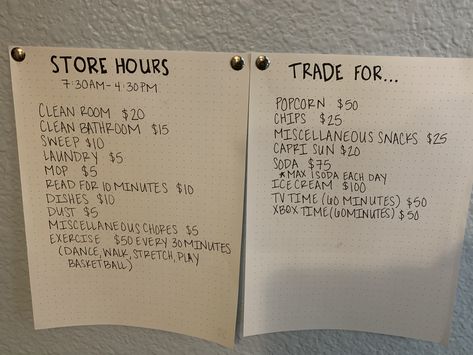 STORE HOURS
7:30AM-4:30PM
CLEAN ROOM $20
CLEAN BATHROOM $15
SWEEP $10
LAUNDRY $5
MOP $5
READ FOR 10 MINUTES $10
DISHES $10
DUST $5
MISCELLANEOUS CHORES $5
EXERCISE $50 EVERY 30 MINUTES
(DANCE, WALK, STRETCH, PLAY
BASKETBALL)
TRADE FOR...
POPCORN $50
CHIPS $25
MISCELLANEOUS SNACKS $25
CAPRI SUN $20
SODA $75
*MAX 1 SODA EACH DAY
ICE CREAM $100
TV TIME (60 MINUTES) $50
XBOX TIME (60 MINUTES) $50